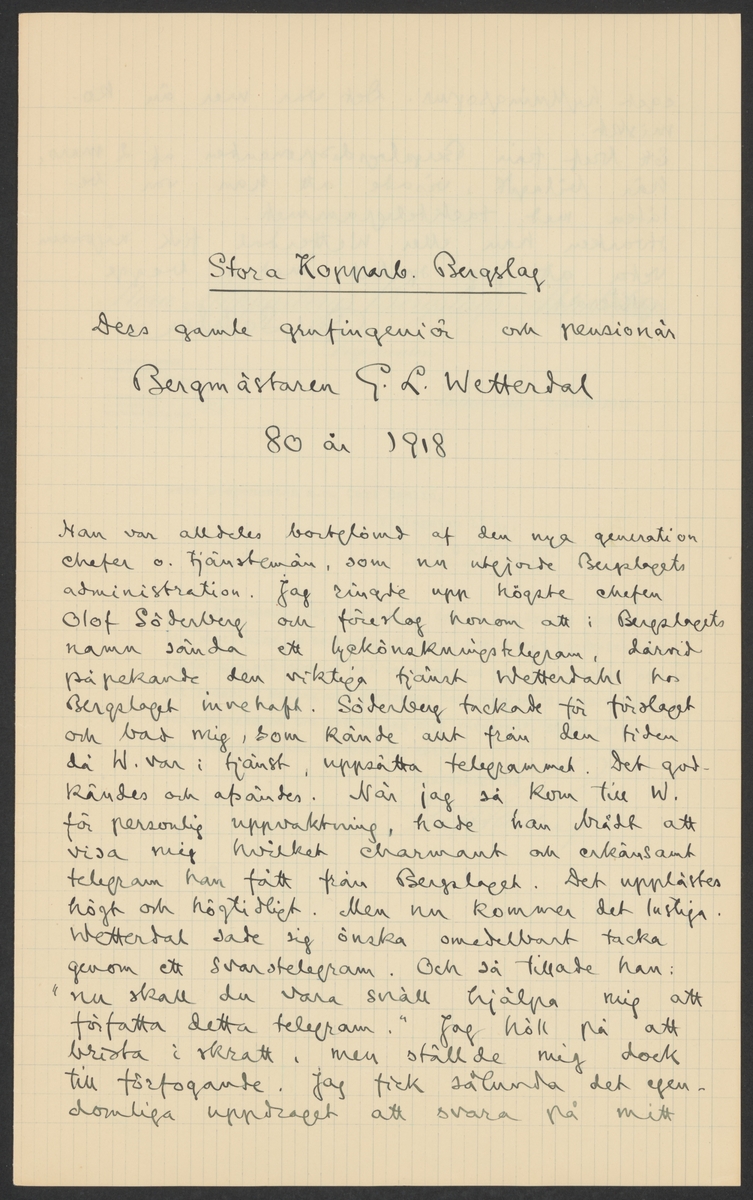 Stora Kopparb. Bergslag
Dess gamle grufingeniör och pensionär
Bergmästaren G. L. Wetterdal
80 år 1918
Han var alldeles bortglömd af den nya generation
chefer o. tjänstemän, som nu utgjorde Bergslagets
administration. Jag ringde upp högste chefen
Olof Söderberg och föreslog honom att i Bergslagets
namn sända ett lyckönskningstelegram, därvid
påpekande den viktiga tjänst Wetterdahl hos
Bergslaget innehaft. Söderberg tackade för förslaget
och bad mig, som kände allt från den tiden
då W. var i tjänst, uppsätta telegrammet. Det god-
kändes och afsändes. När jag så kom till W.
för personlig uppvaktning, hade han brådt att
visa mig hvilket charmant och erkänsamt
telegram han fått från Bergslaget. Det upplästes
högt och högtidligt. Men nu kommer det lustiga.
Wetterdal sade sig önska omedelbart tacka
genom ett svarstelegram. Och så tillade han:
"nu skall du vara snäll hjälpa mig att
författa detta telegram." Jag höll på att
brista i skratt, men ställde mig dock
till förfogande. Jag fick sålunda det egen-
domliga uppdraget att svara på mitt